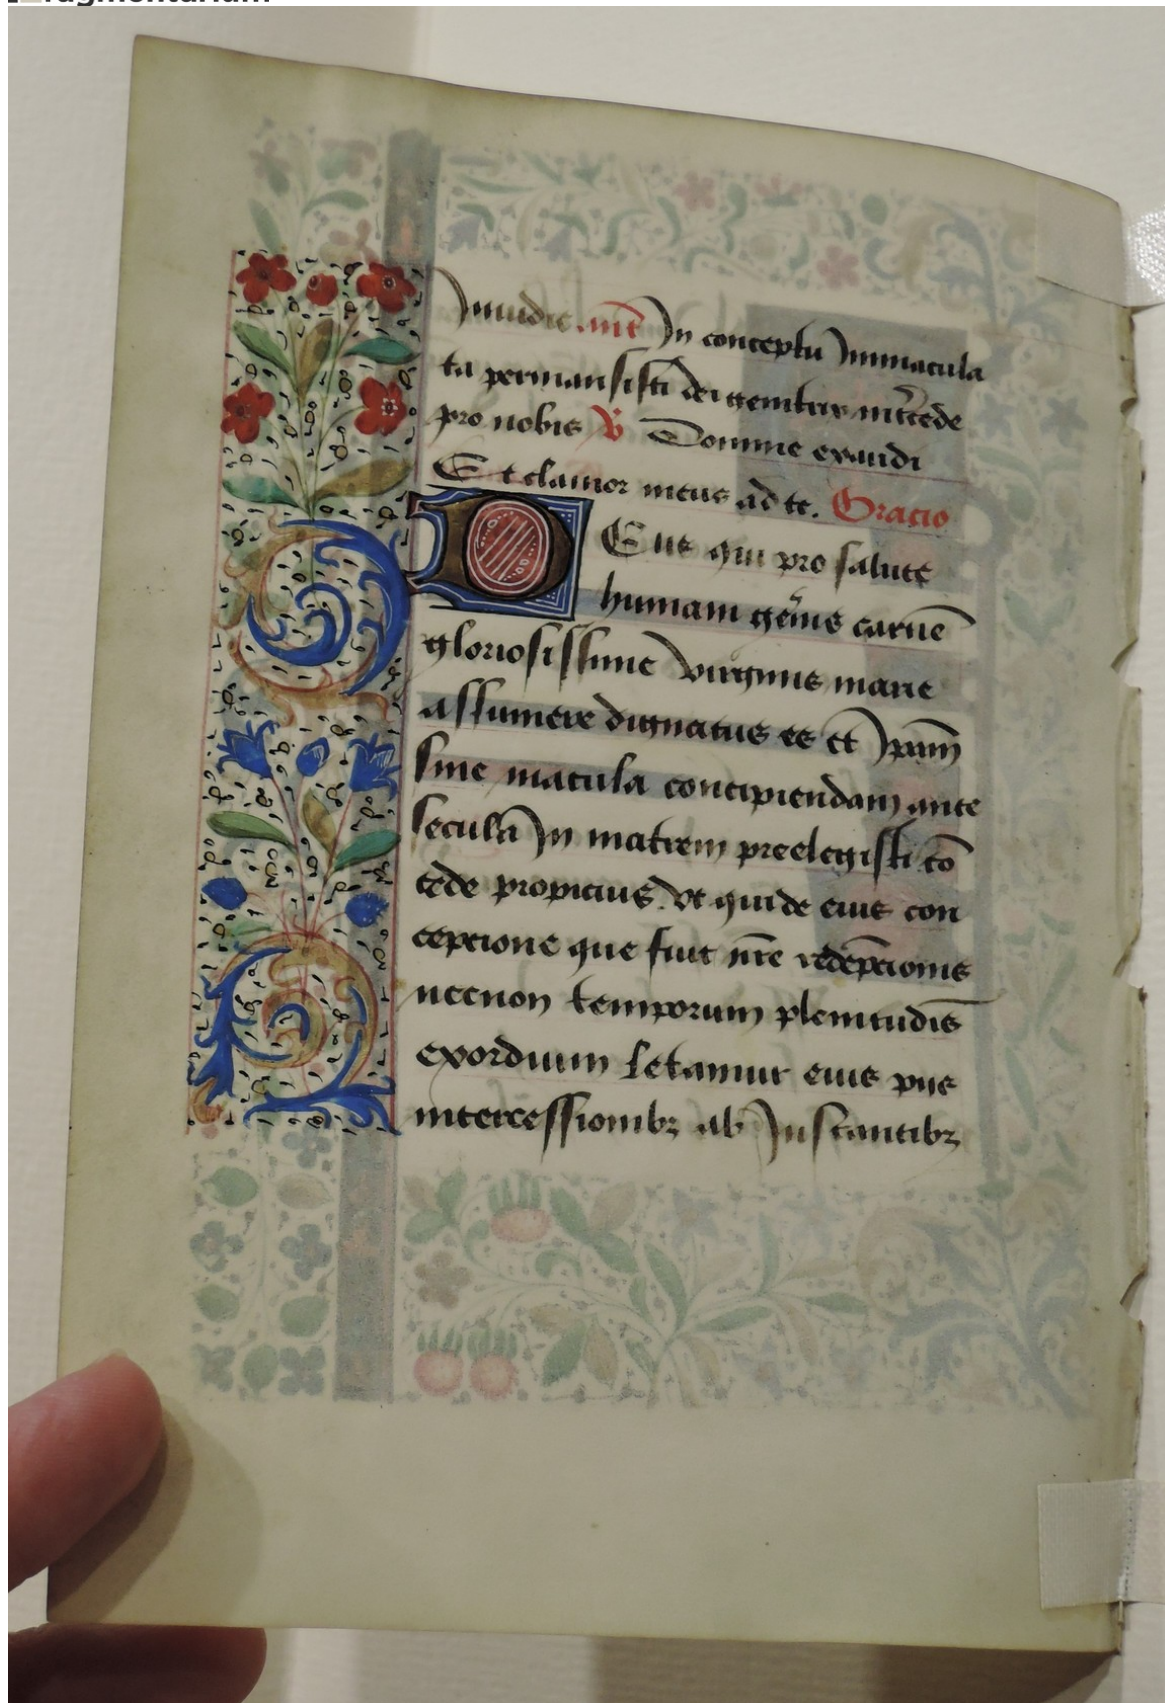 Fragmentarium
In conceptu Immacula
ta permansisti dei genitrix int̄cede
pro nobis ℣ Domine exaudi
Et clamor meus ad te. Oracio
Deus qui pro salute
humani gēnis carnē
gloriosissime virginis marie
assumere dignatus es et Ipam̄
sine macula concipiendam ante
seculā In matrem preelegisti cō
cede propicius. Vt qui de eius con
cepcione que fuit nr̄e redēpcionis
necnon temporum plenitudīs
exordium letamur eius piis
intercessionibꝫ ab Instantibꝫ